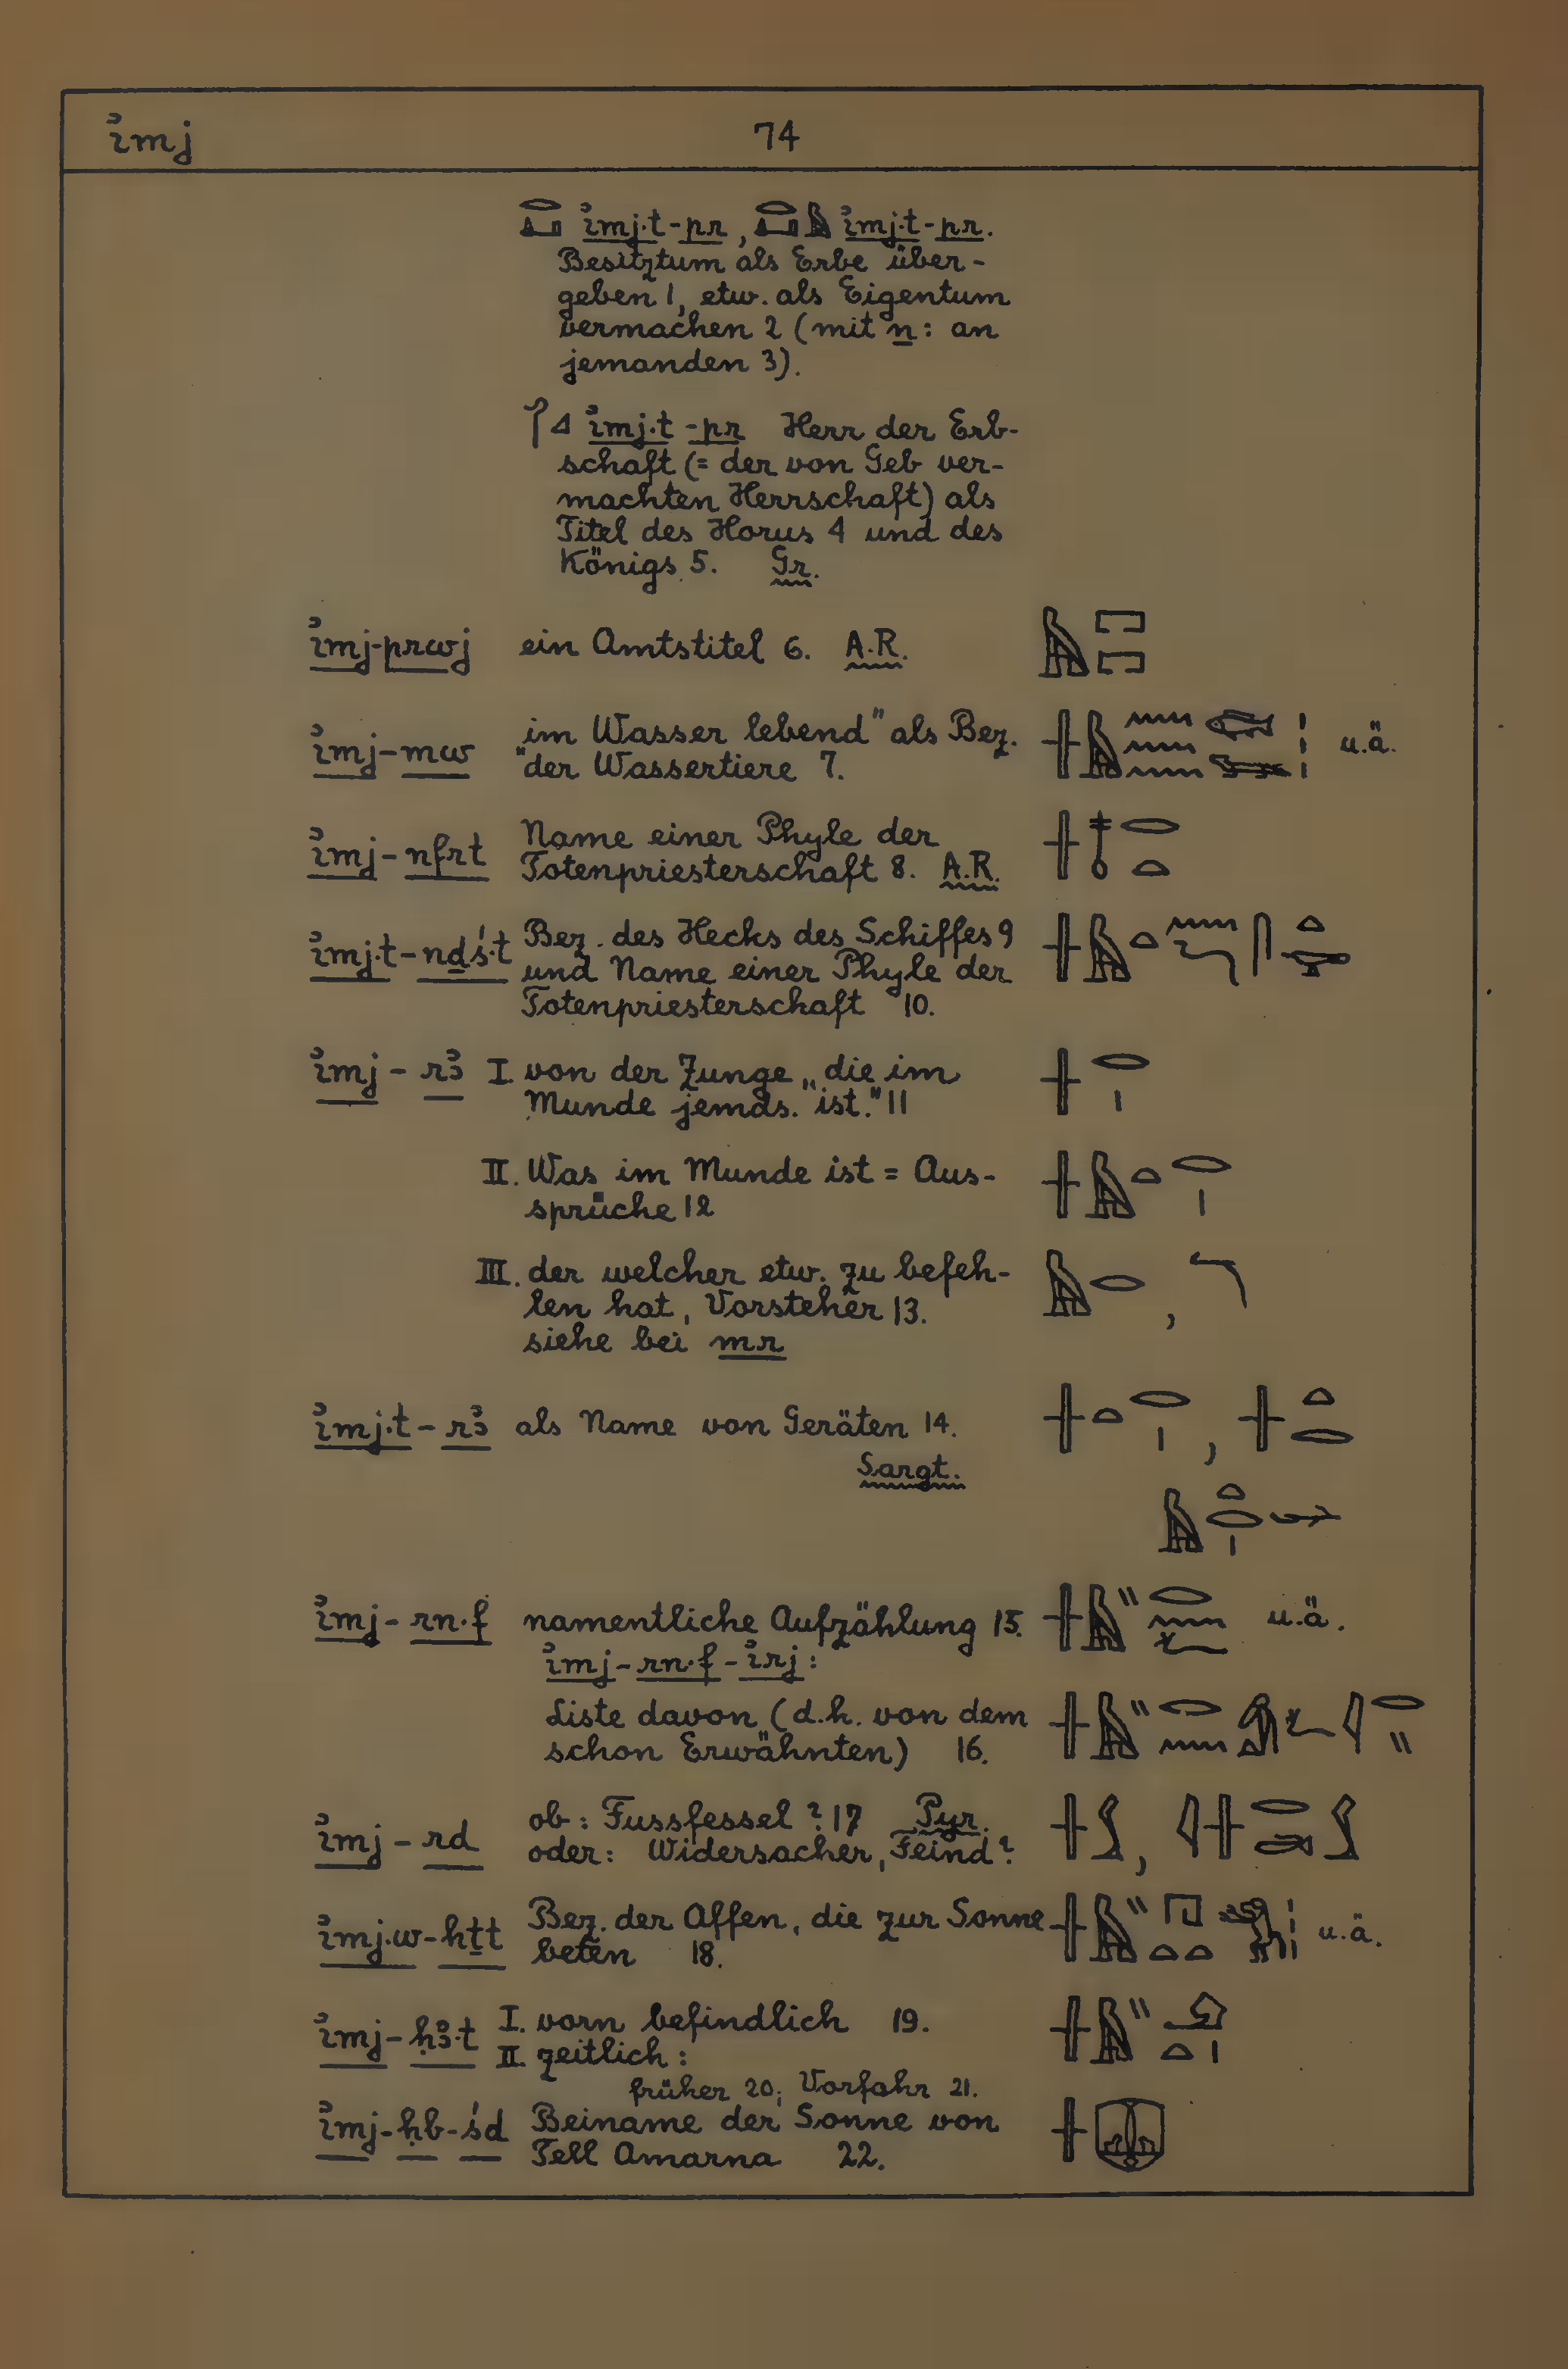 ꞽmj
74
ꞽmj.t-pr, ꞽmj.t-pr.
Besitztum als Erbe über-
geben 1, etw. als Eigentum
vermachen 2 (mit n: an
jemanden 3).
ꞽmj.t-pr Herr der Erb-
schaft (= der von Geb ver-
machten Herrschaft) als
Titel des Horus 4 und des
Königs 5. Gr.
ꞽmj-prwj ein Amtstitel 6. A.R. 𓅓𓉐𓉐
ꞽmj-mw „im Wasser lebend" als Bez. u.ä.
der Wassertiere 7.
ꞽmj-nfrt Name einer Phyle der 𓏶𓄤𓂋𓏏
Totenpriesterschaft 8. A.R.
ꞽmj.t-nḏś.t Bez. des Hecks des Schiffes 9
und Name einer Phyle der
Totenpriesterschaft 10.
ꞽmj-rꜣ I. von der Zunge „die im 𓏶𓂋𓏤
Munde jemds. ist." 11
II. Was im Munde ist = Aus- 𓏶𓅓𓏏𓂋𓏤
sprüche 12
III. der welcher etw. zu befeh- 𓅓𓂋, 𓄓
len hat, Vorsteher 13.
siehe bei mr
ꞽmj.t-rꜣ als Name von Geräten 14. 𓏶𓏏𓂋𓏤, 𓏶𓏏𓂋
Sargt.
ꞽmj-rn.f namentliche Aufzählung 15. 𓏶𓅓𓏭𓂋𓈖𓆑 u.ä.
ꞽmj-rn.f-ꞽrj:
Liste davon (d.h. von dem
schon Erwähnten) 16.
ꞽmj-rd ob: Fussfessel? 17 Pyr.
oder: Widersacher, Feind?
ꞽmj.w-hṯt Bez. der Affen, die zur Sonne u.ä.
beten 18.
ꞽmj-ḥꜣ.t I. vorn befindlich 19. 𓏶𓅓𓏭𓄂𓏏𓏤
II. zeitlich:
früher 20; Vorfahr 21.
ꞽmj-ḥb-śd Beiname der Sonne von
Tell Amarna 22.